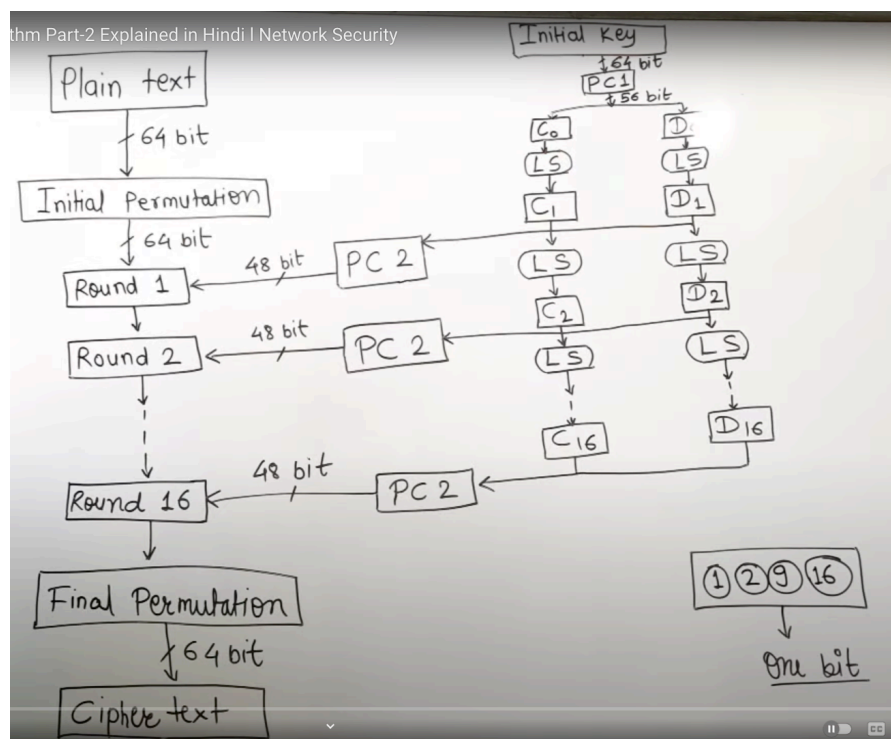 thm Part-2 Explained in Hindi l Network Security
Plain text
64 bit
Initial Permutation
64 bit
Round 1
Round 2
Round 16
Final Permutation
64 bit
Cipher text
48 bit
PC 2
48 bit
PC 2
48 bit
PC 2
Initial Key
64 bit
PC1
56 bit
C₀ D
LS LS
C₁ D₁
LS LS
C₂ D₂
LS LS
C₁₆ D₁₆
1 2 9 16
One bit
CC